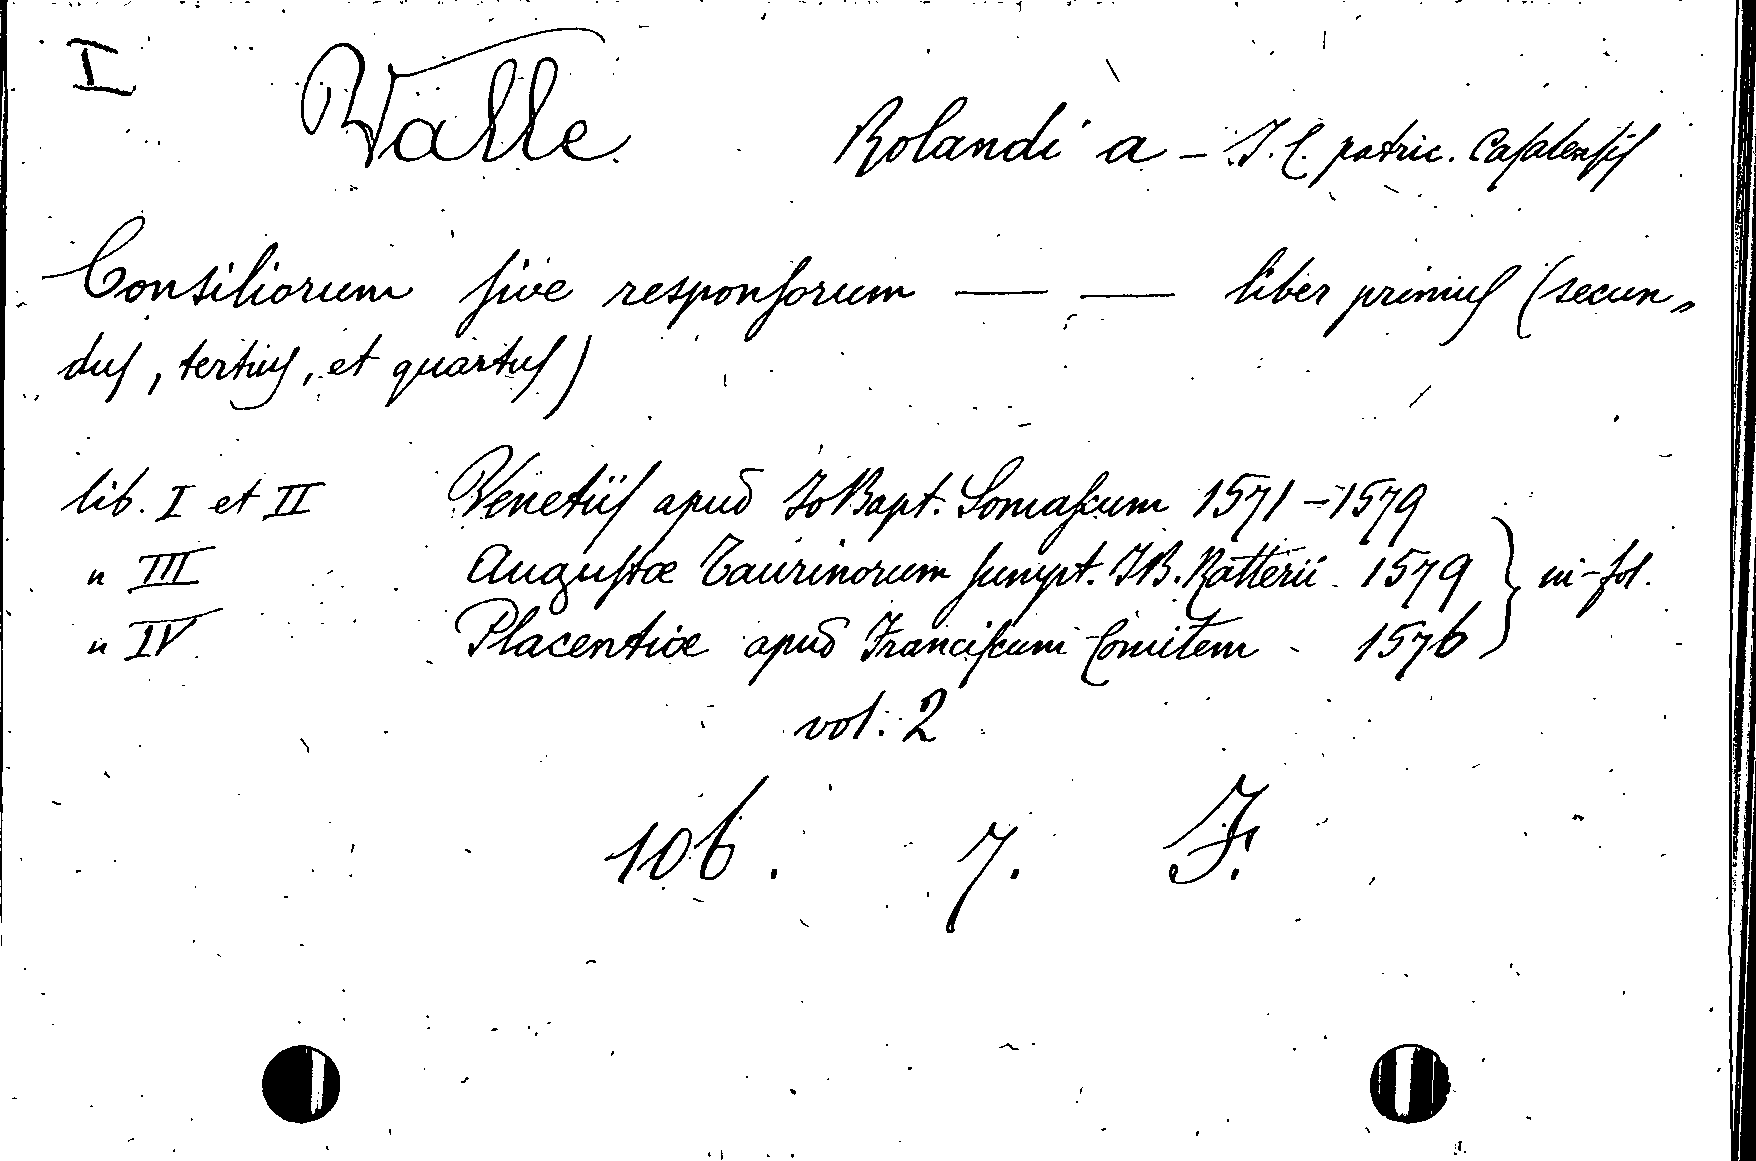 I
Valle. Rolandi a – J. C. patric. Casalensis
Consiliorum sive responsorum — — liber primus (secun„
dus, tertius, et quartus)
lib. I et II Venetiis apud Jo Bapt. Somascum 1571 – 1579
" III Augustæ Taurinorum sumpt. JB. Ratterii 1579 } in-fol.
" IV Placentiæ apud Franciscum Comitem - 1576
vol. 2
106. 7. F.